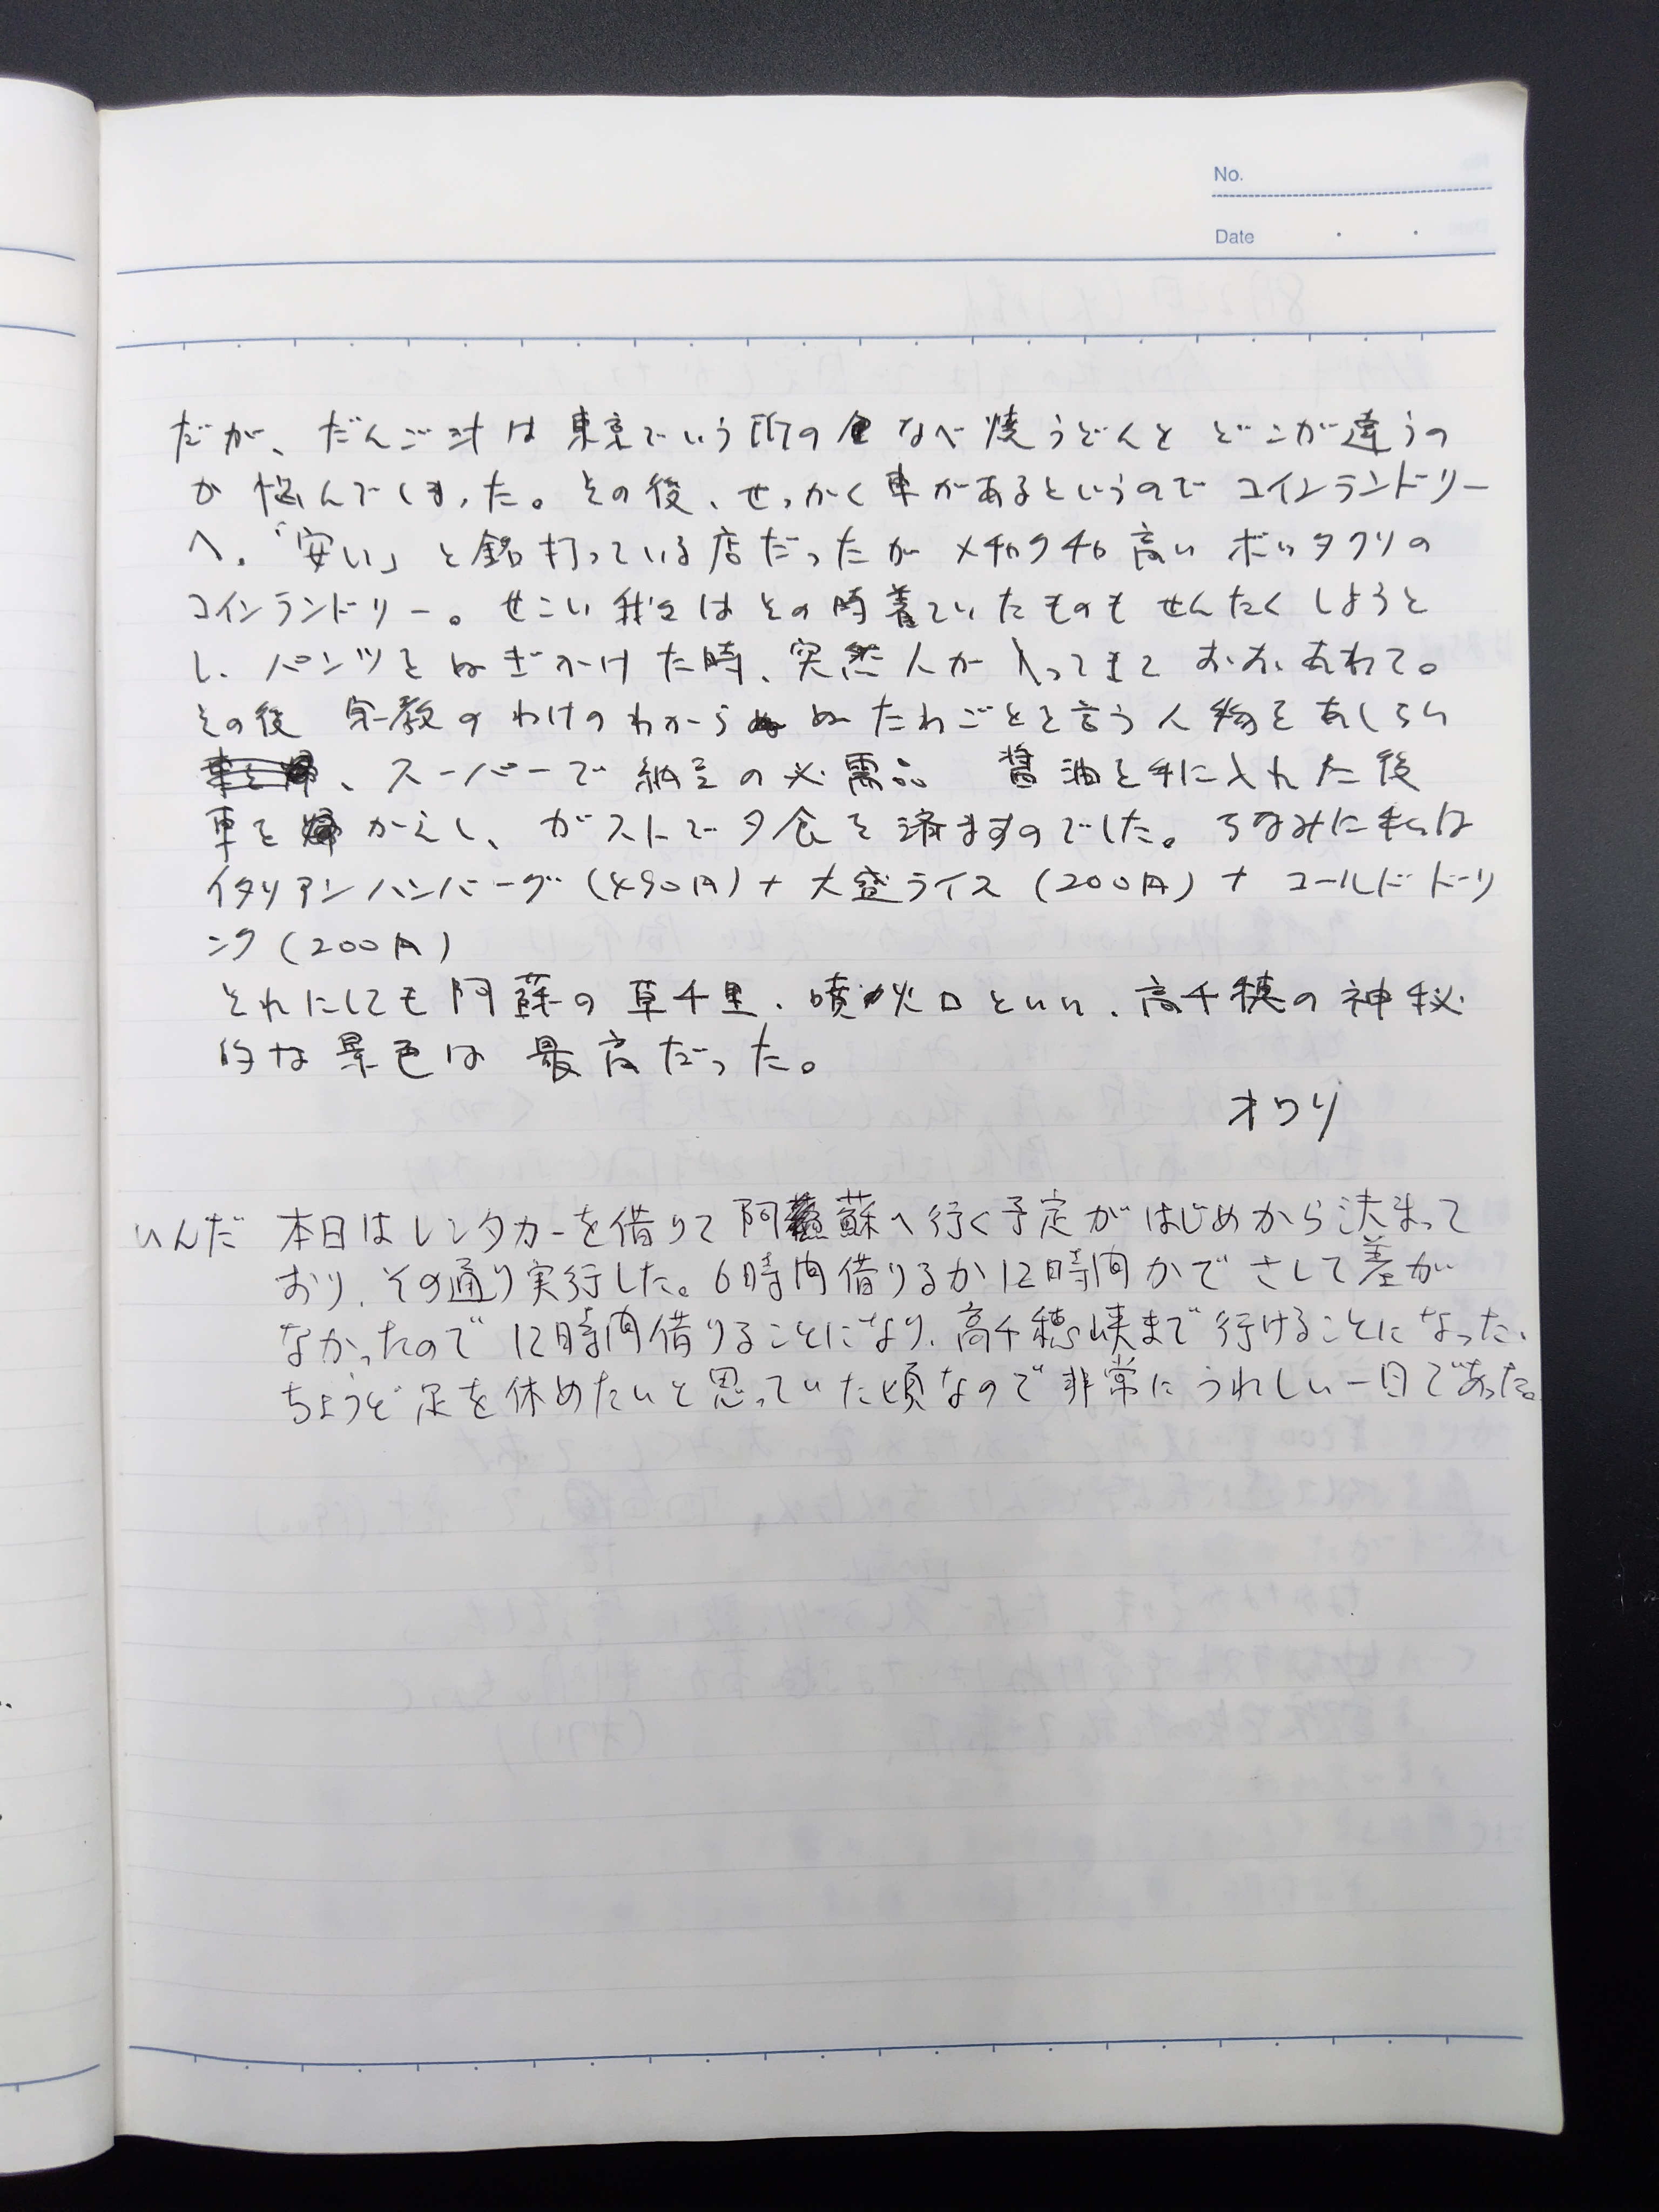 No.
Date
だが、だんご汁は東京でいう所のなべ焼うどんとどこが違うの
か悩んでしまった。その後、せっかく車があるというのでコインランドリー
へ。「安い」と銘打っている店だったがメチャクチャ高いボッタクリの
コインランドリー。せこい我々はその時着ていたものもせんたくしようと
し、パンツをぬぎかけた時、突然人が入ってきておおあわて。
その後 宗教のわけのわからぬたわごとを言う人物をあしらい
、スーパーで納豆の必需品 醤油を手に入れた後
車をかえし、ガストで夕食を済ますのでした。ちなみに私は
イタリアンハンバーグ(490円)+大盛ライス(200円)+コールドドリ
ンク(200円)
それにしても阿蘇の草千里、噴火口といい、高千穂の神秘
的な景色は最高だった。
オワリ
いんだ 本日はレンタカーを借りて阿蘇へ行く予定がはじめから決まって
おり、その通り実行した。6時間借りるか12時間かでさして差が
なかったので12時間借りることになり、高千穂峡まで行けることになった、
ちょうど足を休めたいと思っていた頃なので非常にうれしい一日であった。